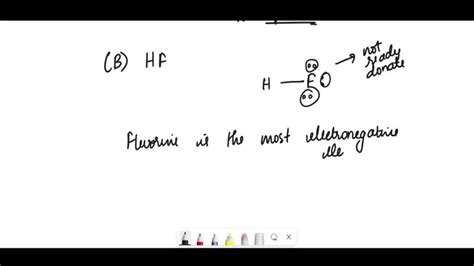 (B) HF
H — F
not
ready
donate
Fluorine is the most electronegative
ele